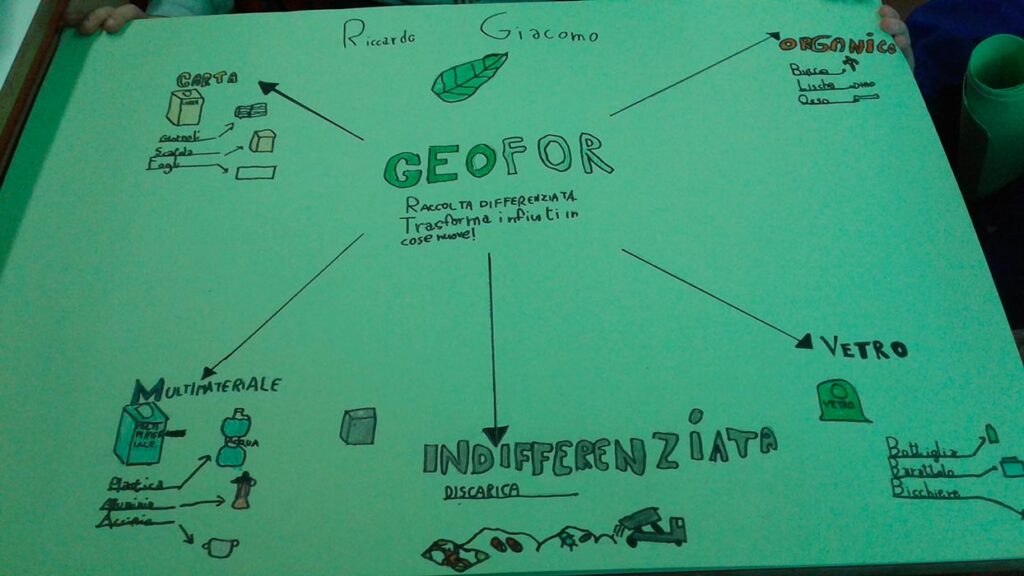 Riccardo Giacomo
CARTA
Giornali
Scatole
Fogli
ORGANICO
Bucce
Lische
Ossa
GEOFOR
RACCOLTA DIFFERENZIATA
Trasforma i rifiuti in
cose nuove!
MULTIMATERIALE
MULTI
MATER
IALE
ACQUA
Plastica
Alluminio
Acciaio
INDIFFERENZIATA
DISCARICA
VETRO
VETRO
Bottiglia
Barattolo
Bicchiere